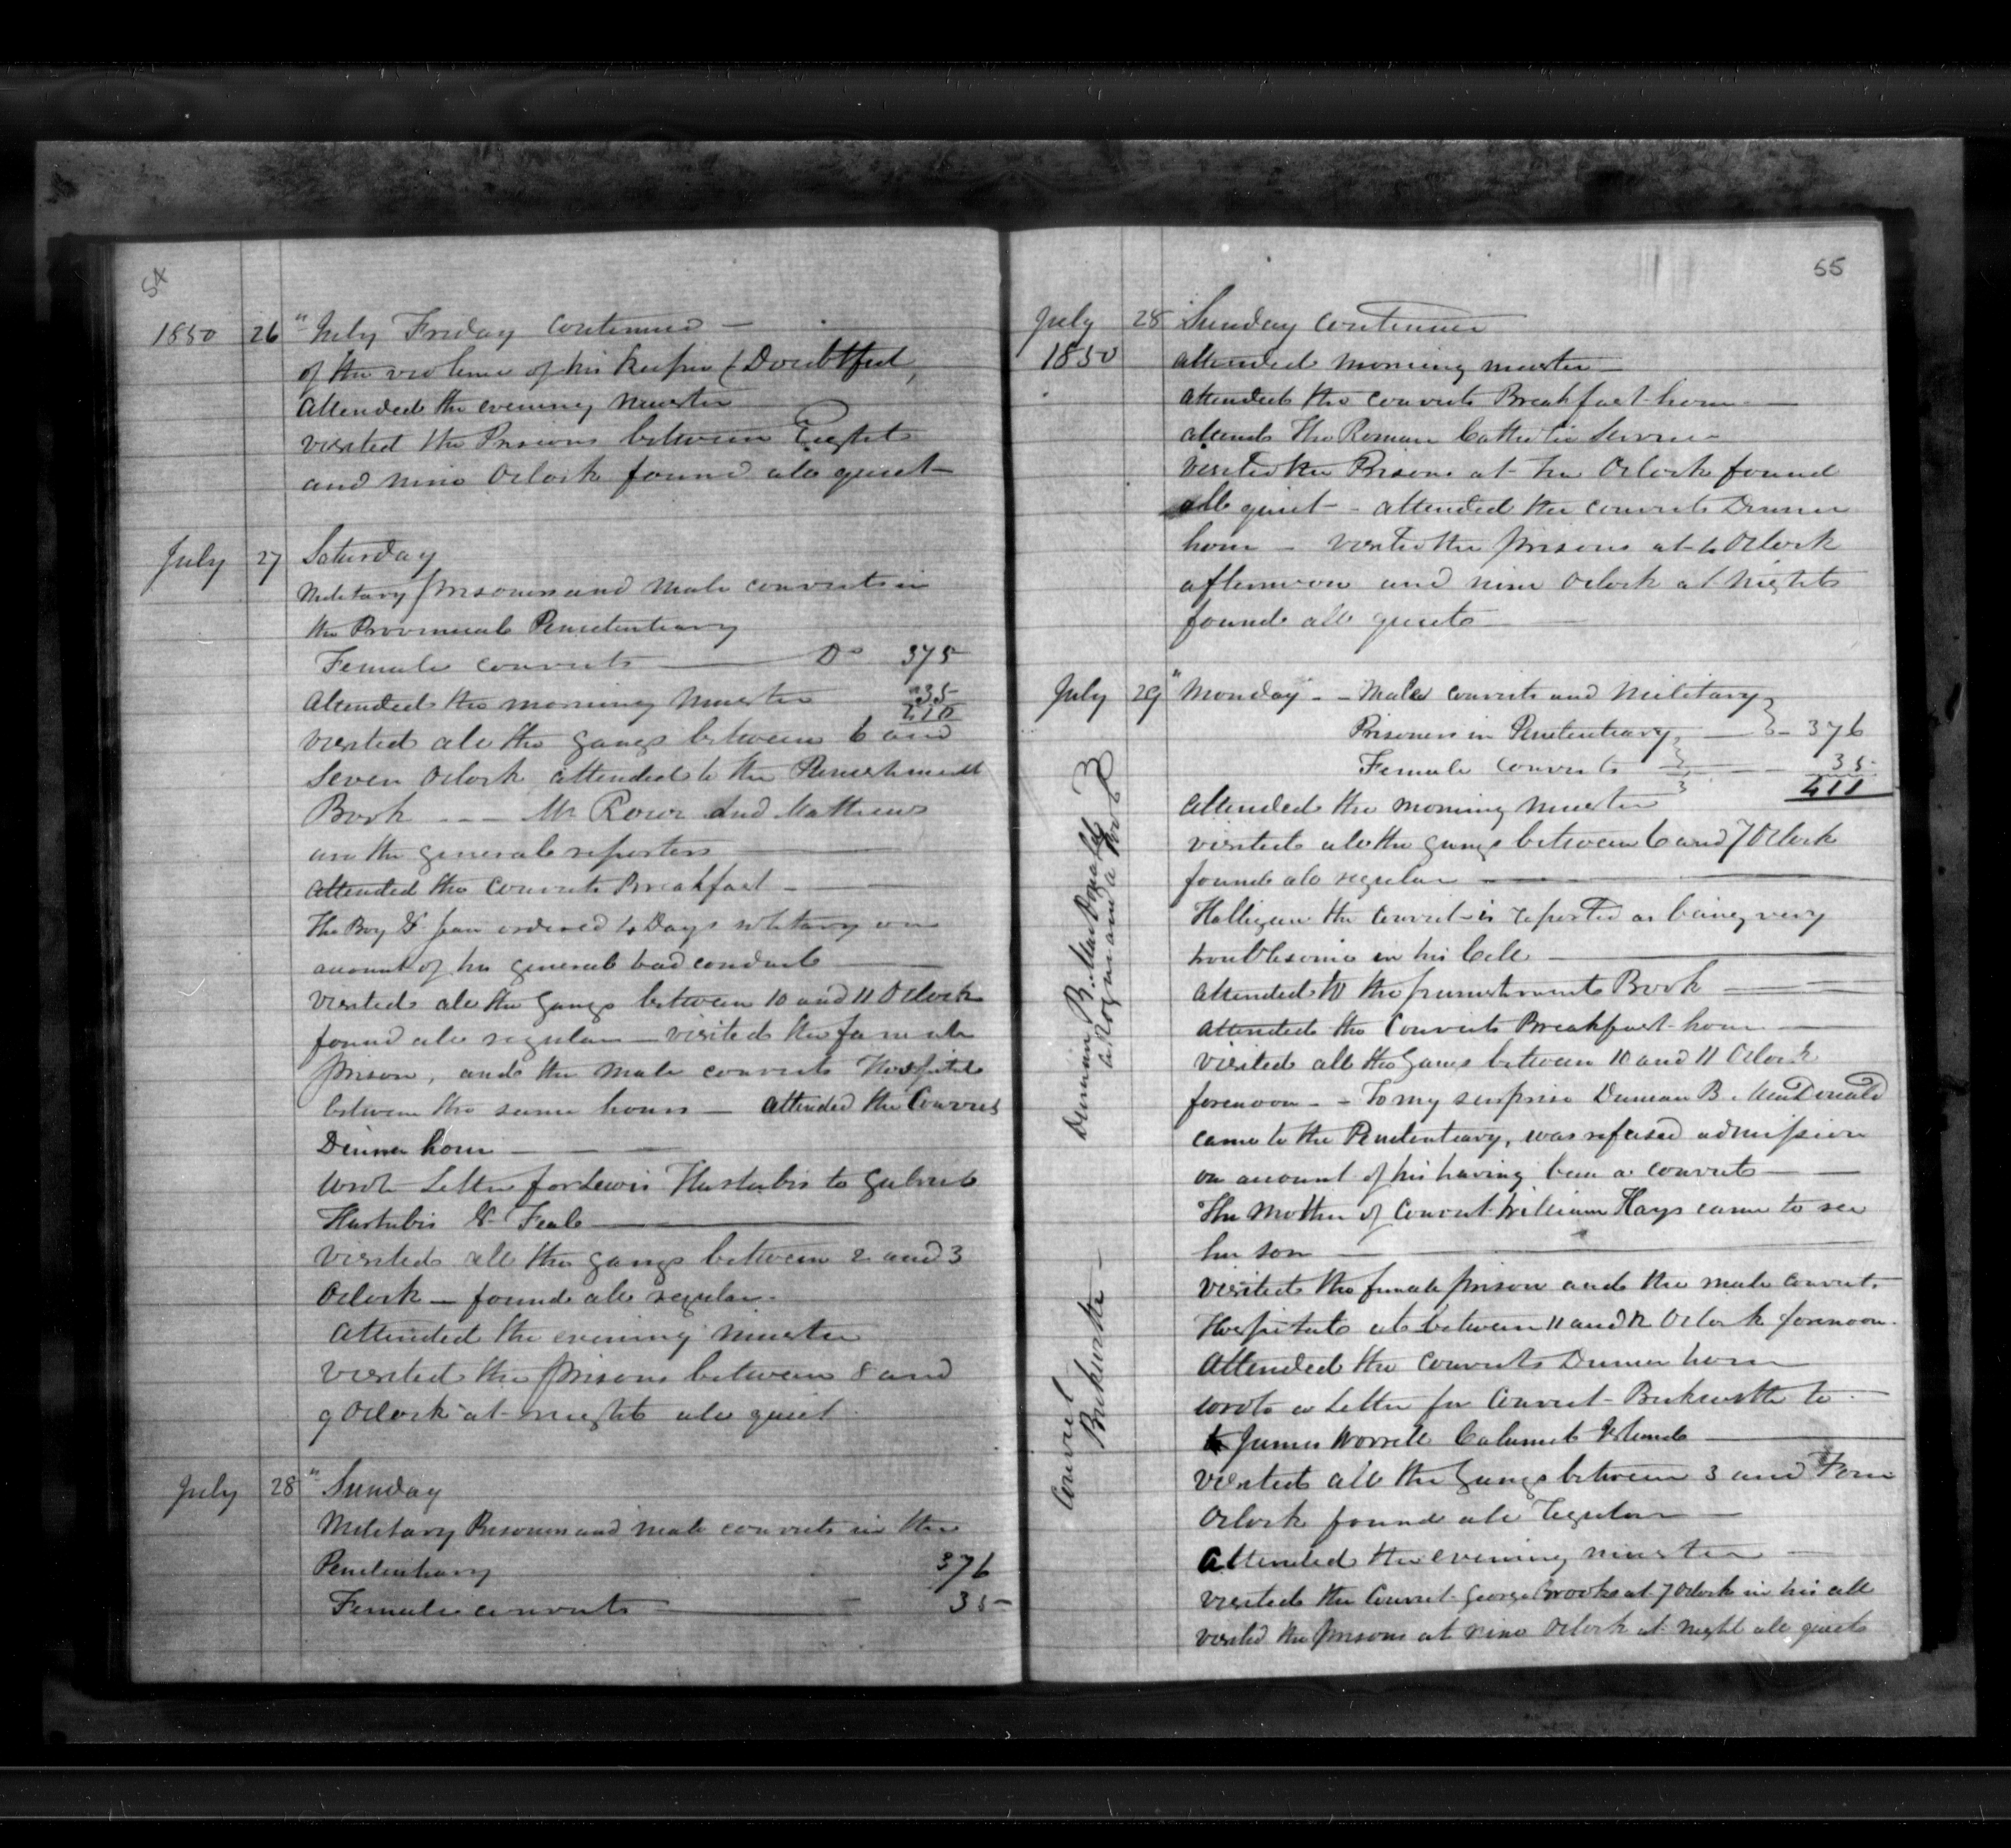 54
1850 26 " July Friday continued —
of the violence of his keeper (Doubtful,
attended the evening muster
visited the Prisons between Eight
and nine Oclock found all quiet —
July 27 Saturday
Military prisoners and Male convicts in
the Provincial Penitentiary
Female convicts — Do 375
Attended the morning Muster 35
410
visited all the gangs between 6 and
Seven Oclock attended to the Punishment
Book — — — Mr Rowe And Mathews
are the general reporters —
attended the Convicts Breakfast — —
The Boy St Jean ordered 4 Days solitary on
account of his general bad conduct —
visited all the Gangs between 10 and 11 Oclock
found all regular — visited the female
prison, and the male convicts Hospital
between the same hours — attended the Convicts
Dinner hour — — —
wrote Letter for Lewis to
St —
visited all the gangs between 2 and 3
Oclock — found all regular.
Attended the evening muster
visited the prisons between 8 and
9 Oclock at night all quiet.
July 28 " Sunday
Military Prisoners and male convicts in the
Penitentiary 376
Female convicts — 35
55
July 28 Sunday continued
1850 attended morning muster —
attended the convicts Breakfast hour —
attends The Roman Catholic Service
visited the Prisons at Oclock found
all quiet — attended the convicts Dinner
hour — visited the prisons at 4 Oclock
afternoon and nine Oclock at Night
found all quiet —
July 29 " Monday — — Male convicts and Military
Prisoners in Penitentiary, — 376
Female convicts — 35
411
Attended the morning muster
visited all the gangs between 6 and 7 Oclock
found all regular —
Halligan the convict is reported as being very
troublesome in his Cell —
attended to the punishment Book —
attended the Convicts Breakfast hour —
visited all the Gangs between 10 and 11 Oclock
forenoon — — To my surprise Duncan B. MacDonald
came to the Penitentiary, was refused admission
on account of his having been a convict — —
The Mother of Convict William Hays came to see
her son —
visited the female prison and the male convict
Hospital at between 11 and 12 Oclock forenoon.
Attended the convicts Dinner hour
wrote a Letter for Convict Beckworth to
to James Worrell Calumet Island —
visited all the Gangs between 3 and Four
Oclock found all regular —
Attended the evening muster —
visited the Convict George Brooks at 7 Oclock in his cell
visited the prisons at nine Oclock at night all quiet
Duncan B. MacDonald
a Rogue and a
Convict
Beckworth —